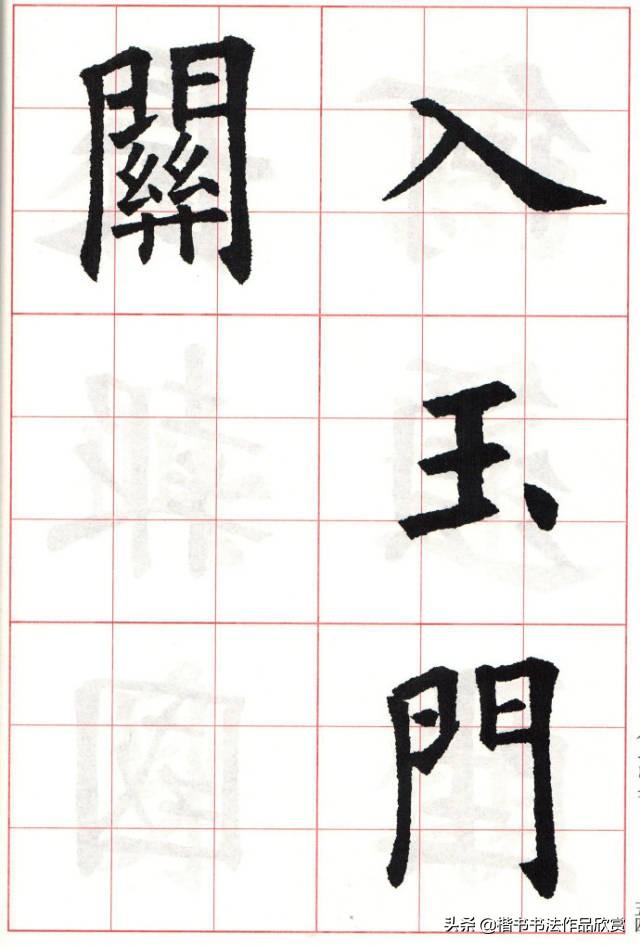 入玉門
關
头条 @楷书书法作品欣赏